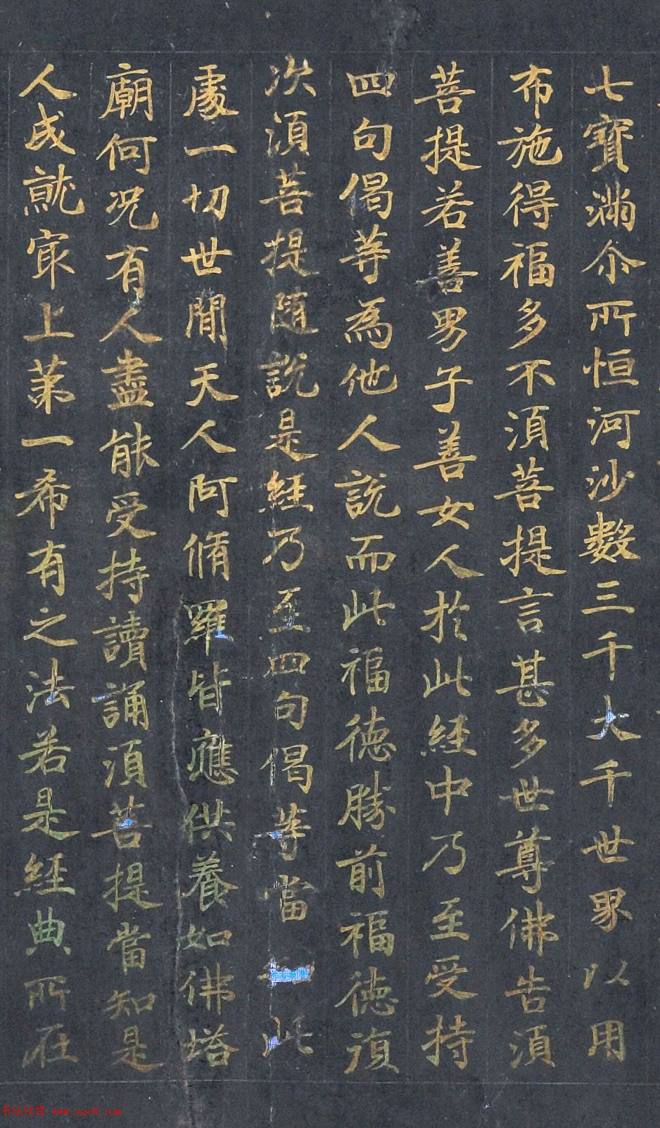 七寶滿尒所恒河沙數三千大千世界以用
布施得福多不須菩提言甚多世尊佛告須
菩提若善男子善女人於此經中乃至受持
四句偈等為他人說而此福德勝前福德復
次須菩提随說是經乃至四句偈等當此
處一切世間天人阿脩羅皆應供養如佛塔
廟何況有人盡能受持讀誦須菩提當知是
人成就冣上苐一希有之法若是經典所在